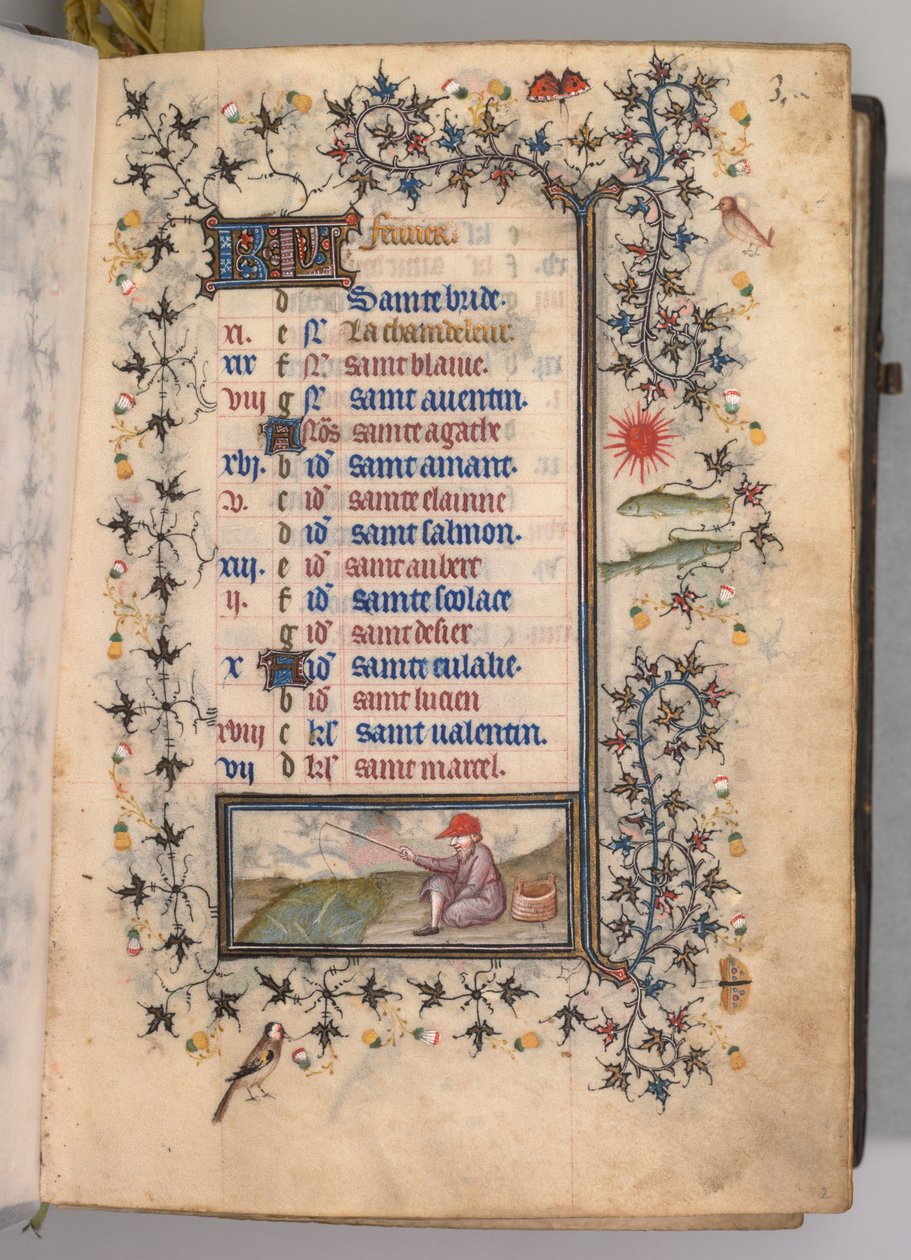 3.
KL feurier.
d Sainte bride.
xi. e N La chandeleur.
xix f N saint blaiue.
viii g N saint auentin.
A Nōs sainte agathe
xvi. b id saint amant.
v. c id sainte elainne
d id saint salmon.
xiij. e id saint aubert
ij. f id sainte scolace
g id saint desier
x A id sainte eulalie.
b id saint lucien
xviii c kl saint ualentin.
vij d kl saint marcel.
2